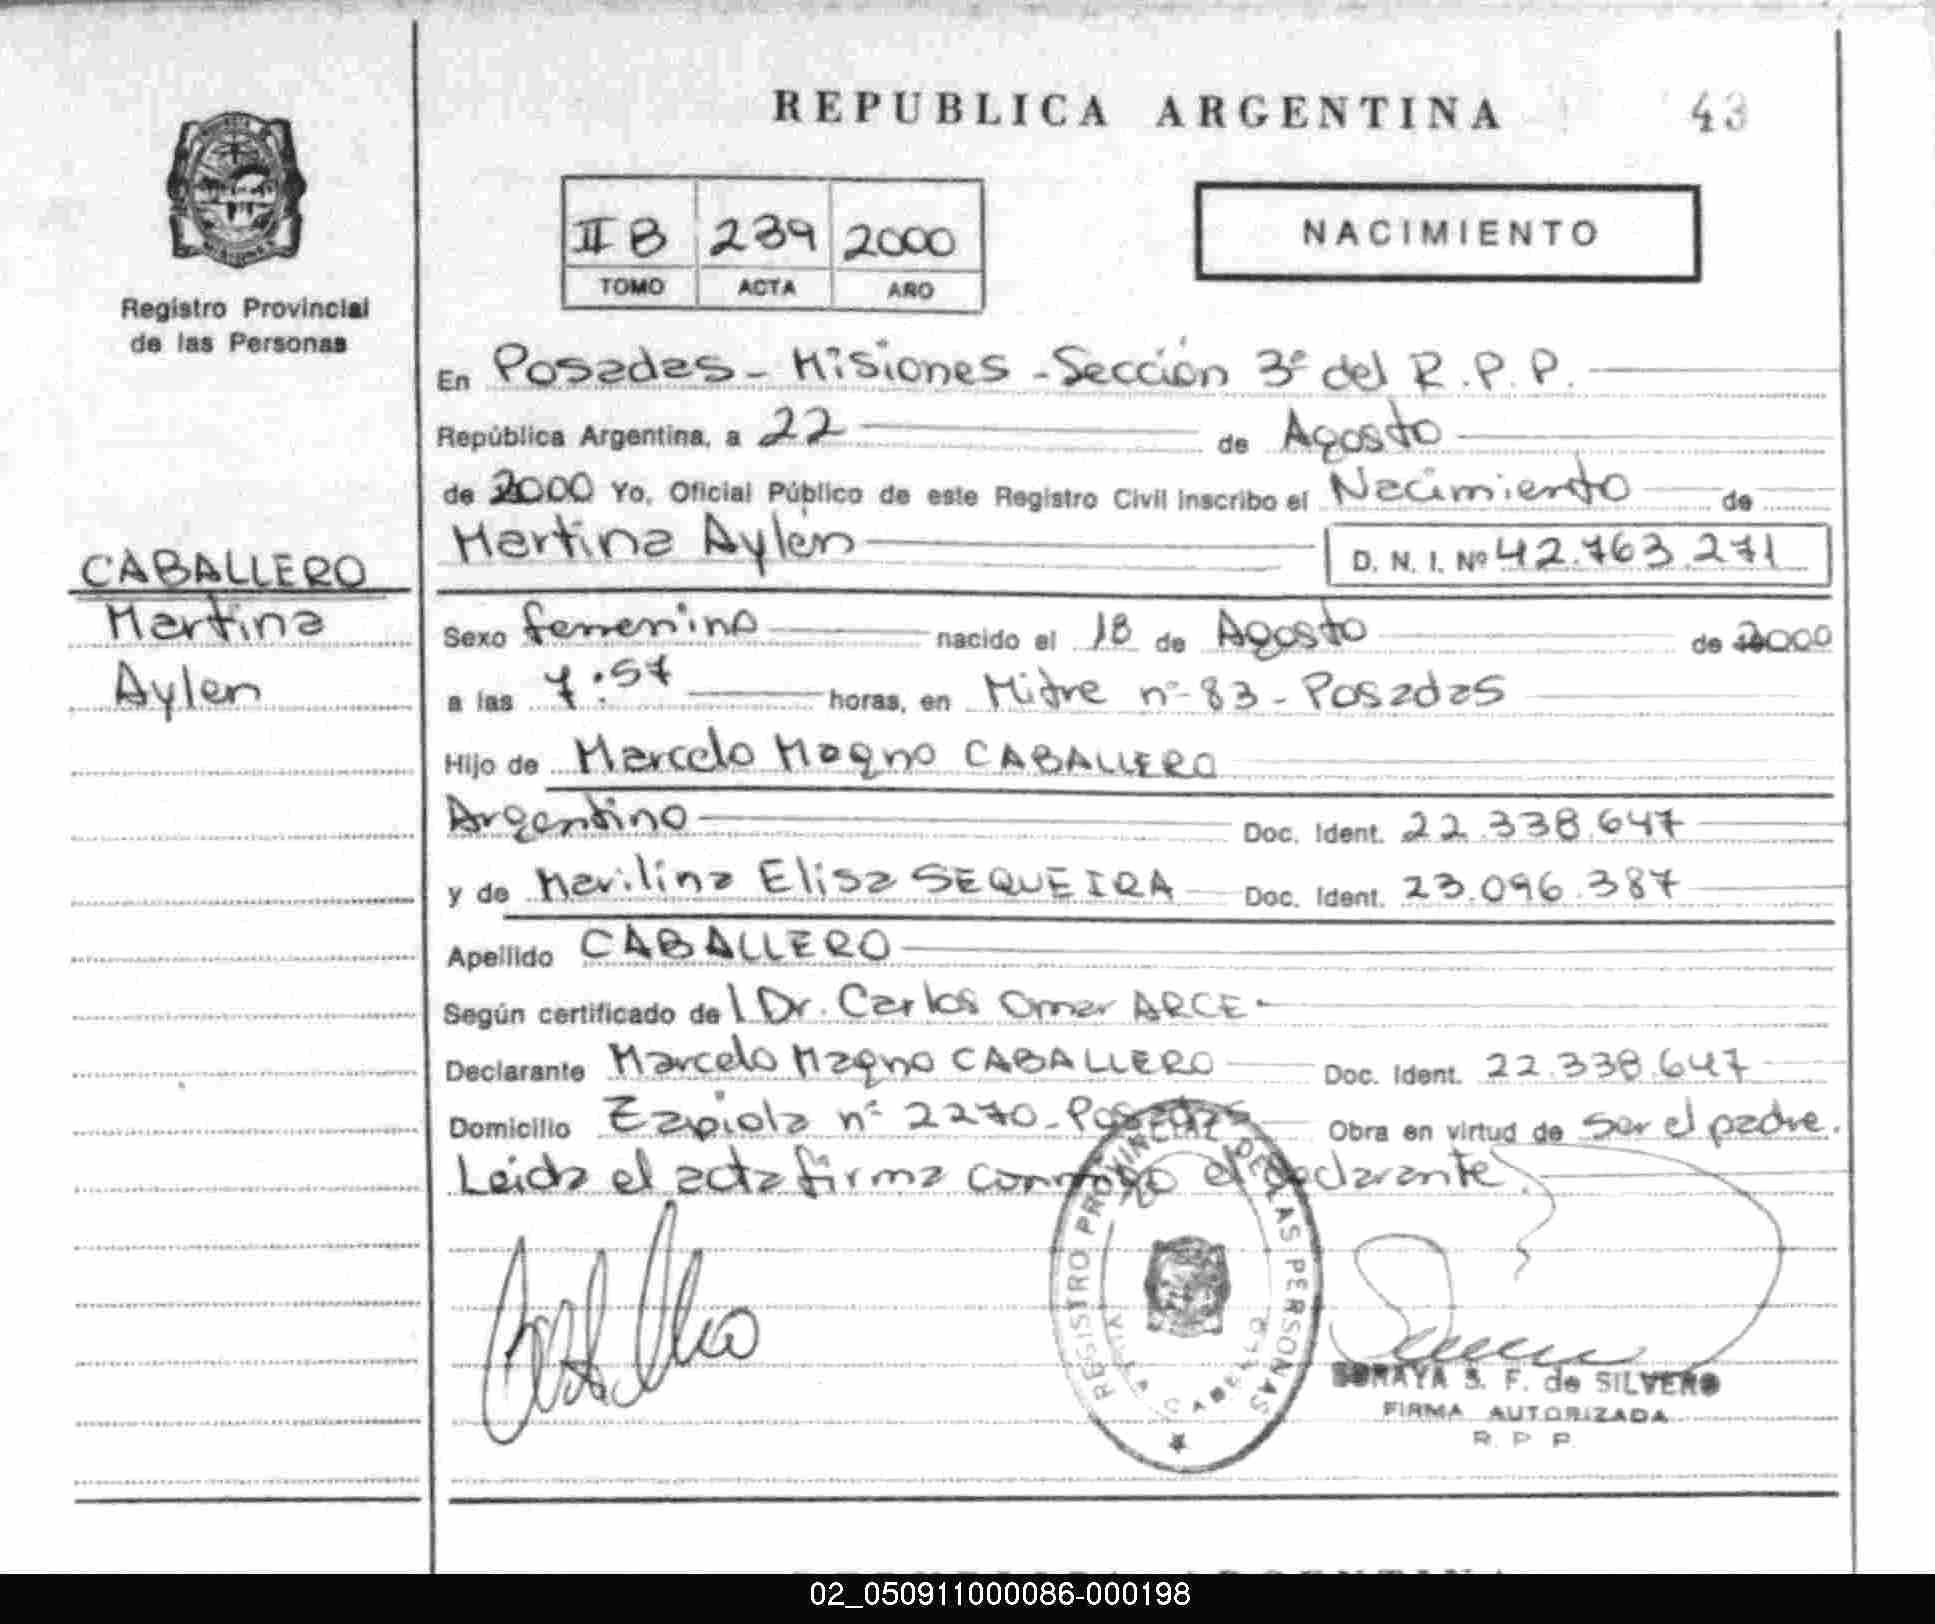 REPUBLICA ARGENTINA
43
II B 239 2000
TOMO ACTA AÑO
NACIMIENTO
Registro Provincial
de las Personas
En Posadas - Misiones - Sección 3ª del R.P.P.
República Argentina, a 22 de Agosto
de 2000 Yo, Oficial Público de este Registro Civil inscribo el Nacimiento de
Martina Aylén D. N. I. Nº 42.763.271
CABALLERO
Martina
Aylen
Sexo femenino nacido el 18 de Agosto de 2000
a las 7:57 horas, en Mitre nº 83 - Posadas
Hijo de Marcelo Magno CABALLERO
Argentino Doc. Ident. 22.338.647
y de Marilina Elisa SEQUEIRA Doc. Ident. 23.096.387
Apellido CABALLERO
Según certificado del Dr. Carlos Omar ARCE
Declarante Marcelo Magno CABALLERO Doc. Ident. 22.338.647
Domicilio Zapiola nº 2270 - Posadas Obra en virtud de ser el padre.
Leida el acta firma conmigo el declarante.
REGISTRO PROVINCIAL DE LAS PERSONAS
SORAYA S. F. de SILVERO
FIRMA AUTORIZADA
R. P. P.
02_050911000086-000198